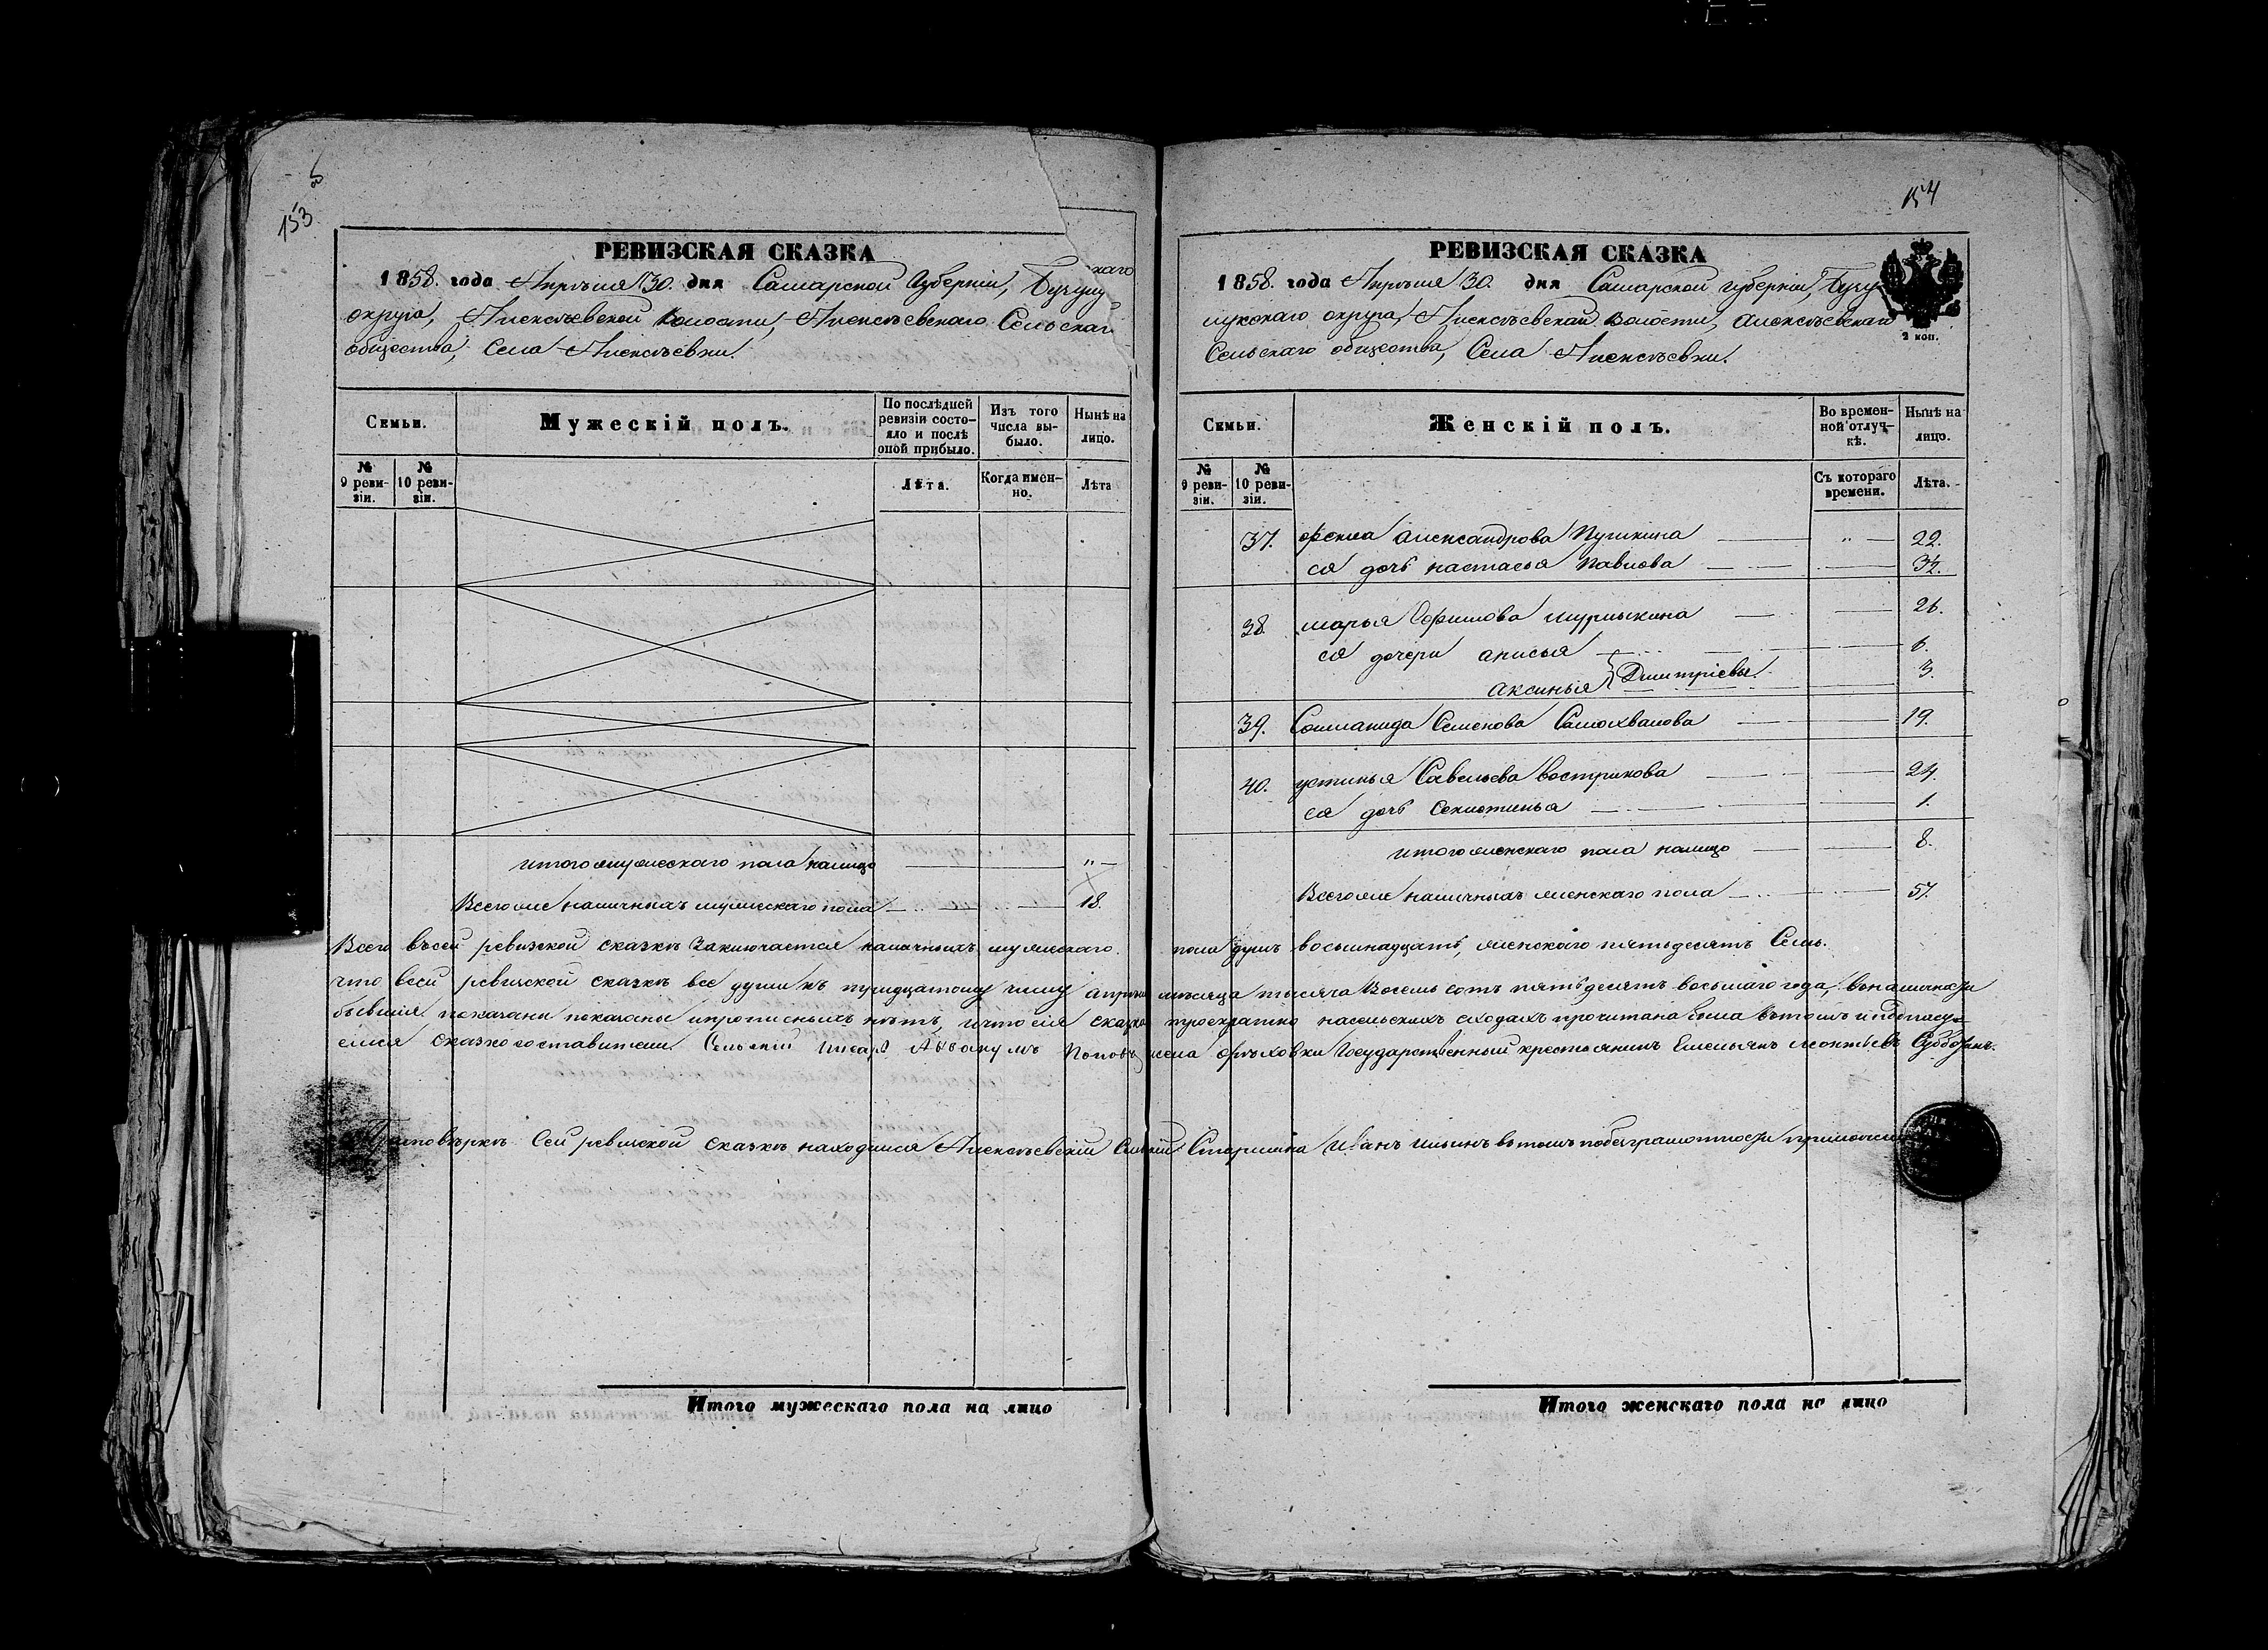 153
РЕВИЗСКАЯ СКАЗКА
1858. года Апрѣля 30. дня Самарской Губерніи, Бугу
каго
округа, Алексѣевской Волости, Алексѣевскаго Сельскаг
общества, Села Алексѣевки.
Семьи.
Мужескій полъ.
По послѣдней ревизіи состо-
яло и послѣ оной прибыло.
Изъ того числа вы-
было.
Нынѣ на лицо.
№ 9 реви-
зіи.
№ 10 реви-
зіи.
Лѣта.
Когда имен-
но.
Лѣта
итого мужескаго пола налицо „
Всего же наличныхъ мужескаго пола 18.
154
РЕВИЗСКАЯ СКАЗКА
1858. года Апрѣля 30. дня Самарской губерніи, Бугу
лукскаго округа, Алексѣевской Волости, Алексѣевскаго
Сельскаго общества, Села Алексѣевки.
2 коп.
Семьи.
Женскій полъ.
Во времен-
ной отлуч-
кѣ.
Нынѣ на лицо.
№ 9 реви-
зіи.
№ 10 реви-
зіи.
Съ котораго времени.
Лѣта.
37. Фекла Александрова Пушкина „ 22.
ея дочь настасья Павлова 3½.
38. марья Ефимова мурлыкина 26.
ея дочери анисья 6.
аксинья } Дмитріевы 3.
39. Соломанида Семенова Самохвалова 19.
40. устинья Савельева вострикова 24.
ея дочь Секлетинья 1.
итого женскаго пола налицо 8.
Всего же наличныхъ женскаго пола 57.
Всего въсей ревизской сказкѣ заключается наличныхъ мужескаго пола душъ восемнадцать, женскаго пятьдесятъ Семь.
что всей ревизской сказкѣ все души къ тридцатому числу апрѣля мѣсяца тысяча Восемь сотъ пятьдесятъ восьмаго года, вналичности
бывшія показаны показаны ипрописныхъ нѣтъ, ичто сія сказка троекратно насельскихъ сходахъ прочитана была вътомъ иподписуе
емся сказкосоставители. Сельскій писарь Аввакумъ Поповъ села орѣховки Государственный крестьянинъ Емельянъ леонтьевъ
Приповѣркѣ Сей ревизской сказкѣ находился Алексѣевскій Сельскій Старшина Иванъ ильинъ вътомъ побезграмотности приложилъ
Итого мужескаго пола на лицо
Итого женскаго пола на лицо